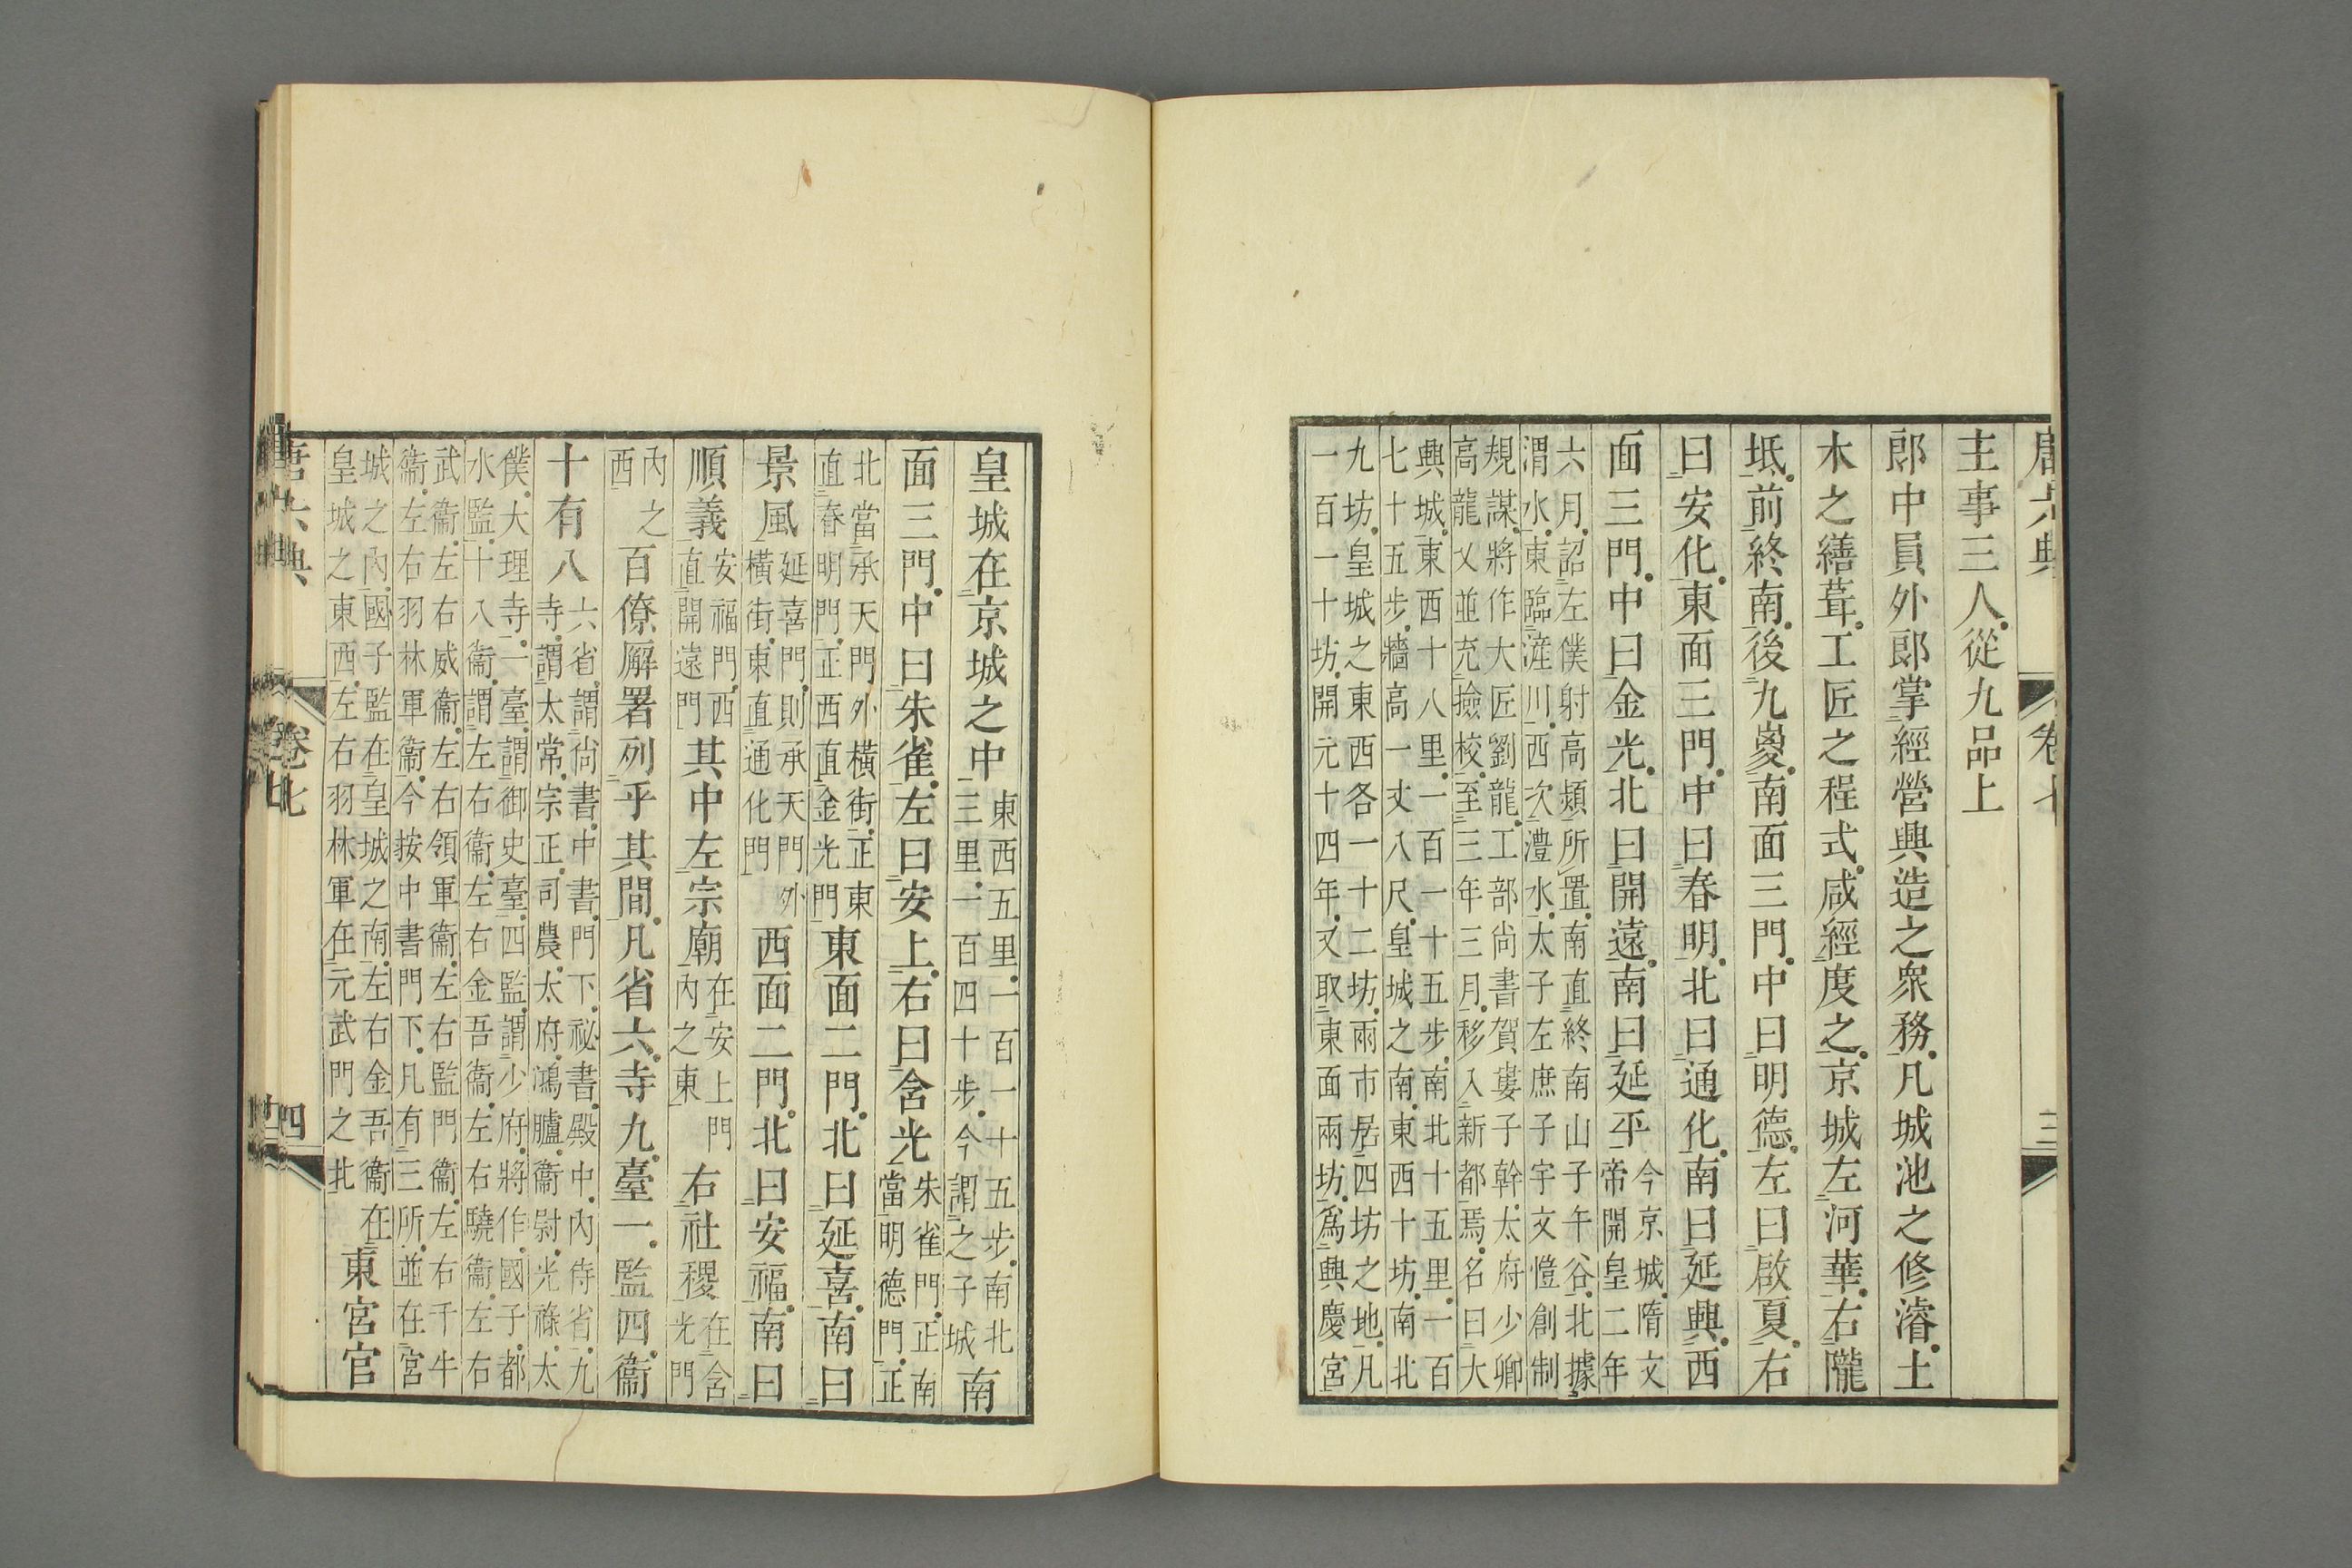 唐六典 卷七 三
主事三人從九品上
郎中員外郎掌經營興造之衆務凡城池之修濬土
木之繕葺工匠之程式咸經度之京城左河華右隴
坻前終南後九嵏南面三門中曰明德左曰啟夏右
曰安化東面三門中曰春明北曰通化南曰延興西
面三門中曰金光北曰開遠南曰延平今京城隋文
帝開皇二年
六月詔左僕射高熲所置南直終南山子午谷北據
渭水東臨滻川西次灃水太子左庶子宇文愷創制
規謀將作大匠劉龍工部尚書賀婁子幹太府少卿
高龍乂並充撿校至三年三月移入新都焉名曰大
興城東西十八里一百一十五步南北十五里一百
七十五步牆高一丈八尺皇城之南東西十坊南北
九坊皇城之東西各一十二坊兩市居四坊之地凡
一百一十坊開元十四年又取東面兩坊爲興慶宮
皇城在京城之中東西五里一百一十五步南北
三里一百四十步今謂之子城南
面三門中曰朱雀左曰安上右曰含光朱雀門正南
當明德門正
北當承天門外橫街正東
直春明門正西直金光門東面二門北曰延喜南曰
景風延喜門則承天門外
橫街東直通化門西面二門北曰安福南曰
順義安福門西
直開遠門其中左宗廟在安上門
內之東右社稷在含
光門
內之
西百僚廨署列乎其間凡省六寺九臺一監四衞
十有八六省謂尚書中書門下祕書殿中內侍省九
寺謂太常宗正司農太府鴻臚衞尉光祿太
僕大理寺一臺謂御史臺四監謂少府將作國子都
水監十八衞謂左右衞左右金吾衞左右驍衞左右
武衞左右威衞左右領軍衞左右監門衞左右千牛
衞左右羽林軍衞今按中書門下凡有三所並在宮
城之內國子監在皇城之南左右金吾衞在
皇城之東西左右羽林軍在元武門之北東宮官
唐六典 卷七 四